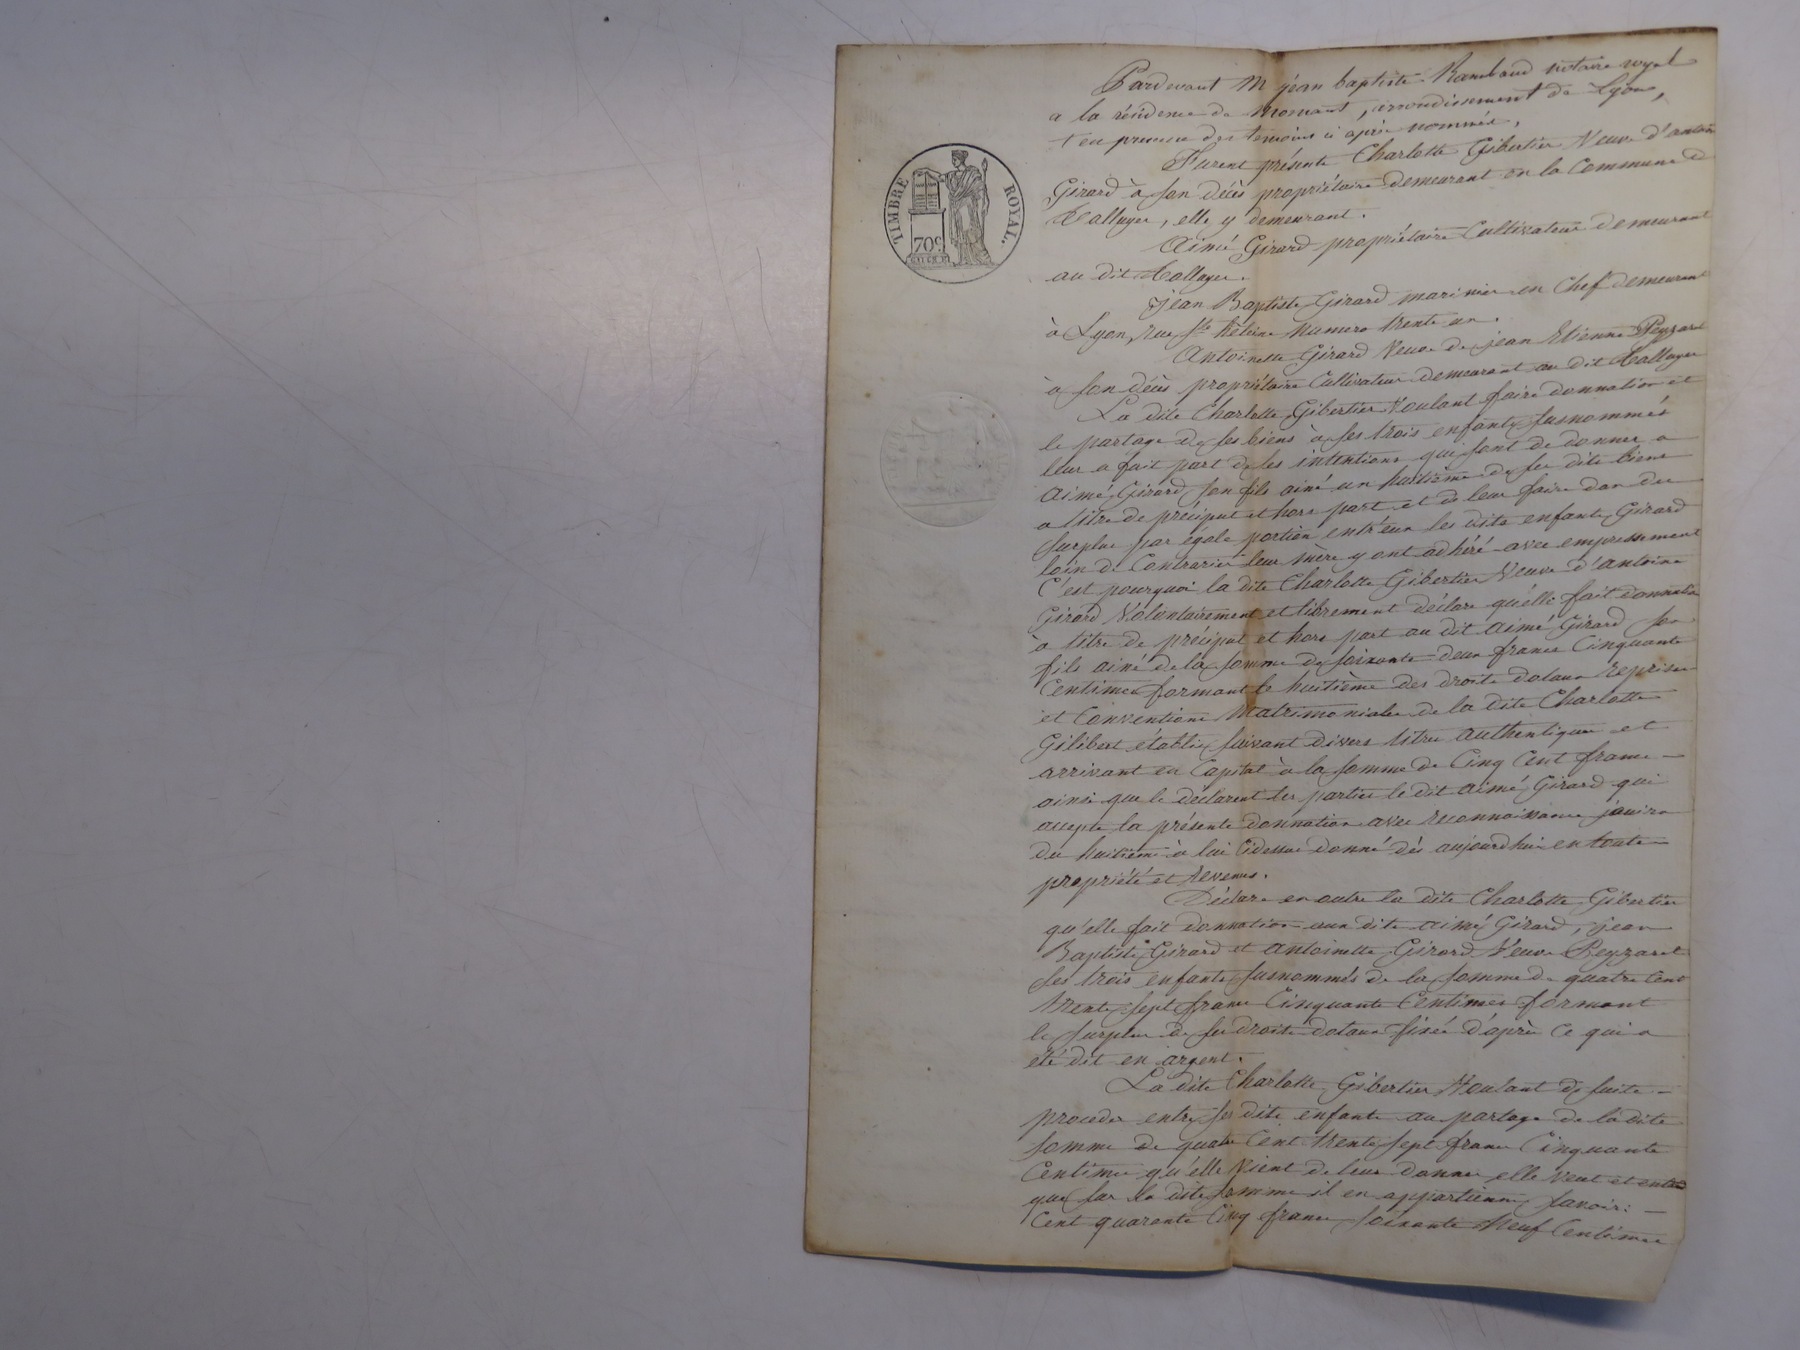 TIMBRE ROYAL.
70c
Pardevant Me jéan baptiste Rambaud notaire royal
a la résidence de Mornant, arrondissement de Lyon,
et en presence des temoins ci après nommés,
Furent présents Charlotte Gibertier Veuve d'antoine
Girard à son décès propriétaire demeurant en la Commune de
Talluyer, elle y demeurant.
Aimé Girard propriétaire Cultivateur demeurant
au dit Talluyer.
jéan Baptiste Girard marinier en Chef demeurant
à Lyon, rue Ste héleine Numero trente un.
Antoinette Girard Veuve de jéan Etienne Peyzaret
à son décès propriétaire Cultivateur demeurant au dit Talluyer
La dite Charlotte Gibertier Voulant faire donnation et
le partage de ses biens à ses trois enfants susnommés
leur a fait part de ses intentions qui sont de donner a
Aimé Girard son fils ainé un huitième de ses dits biens
a titre de préciput et hors part et de leur faire don du
surplus par égale portion entr'eux les dits enfants Girard
loin de Contrarier leur mère y ont adhéré avec empressement
C'est pourquoi la dite Charlotte Gibertier Veuve d'antoine
Girard Volontairement et librement déclare qu'elle fait donnation
à titre de préciput et hors part au dit Aimé Girard son
fils ainé de la somme de soixante deux francs Cinquante
Centimes formant le huitième des droits dotaux reprises
et Conventions Matrimoniales de la dite Charlotte
Gilibert établis suivant divers titres authentiques et
arrivant en Capital à la somme de Cinq Cent francs
ainsi que le déclarent les parties le dit Aimé Girard qui
accepte la présente donnation avec reconnaissance jouira
du huitième à lui Cidessus donné dès aujourdhui en toute
propriété et revenus.
Déclare en outre la dite Charlotte Gibertier
qu'elle fait donnation aux dits aimé Girard, jéan
Baptiste Girard et Antoinette Girard Veuve Peyzaret
ses trois enfants susnommés de la somme de quatre Cent
trente sept francs Cinquante Centimes formant
le surplus de ses droits dotaux fixés d'après Ce qui a
été dit en argent.
La dite Charlotte Gibertier Voulant de suite
proceder entre ses dits enfants au partage de la dite
somme de quatre Cent trente sept francs Cinquante
Centimes qu'elle Vient de leur donner elle veut et entend
que sur la dite somme il en appartienne savoir:
Cent quarante Cinq francs soixante Neuf Centimes